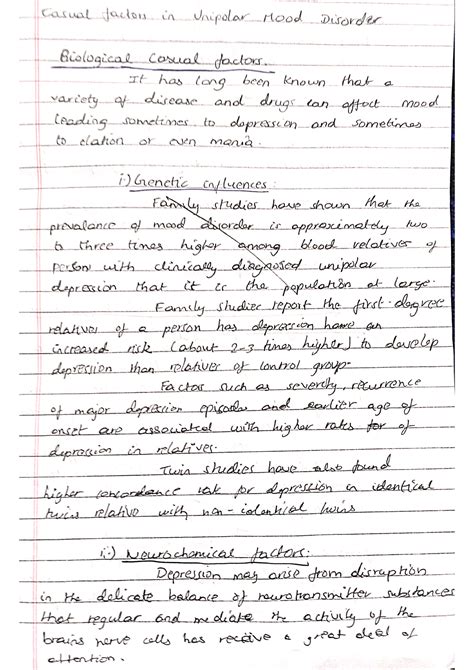 Casual factors in Unipolar Mood Disorder
Biological Casual factors.
It has long been known that a
variety of disease and drugs can affect mood
leading sometimes to depression and sometimes
to elation or even mania.
i) Genetic influences:
Family studies have shown that the
prevalance of mood disorder is approximately two
to three times higher among blood relatives of
person with clinically diagnosed unipolar
depression that it is the population at large.
Family studies report the first-degree
relatives of a person has depression have an
increased risk (about 2-3 times higher) to develop
depression than relatives of control group.
Factors such as severity, recurrence
of major depression episodes and earlier age of
onset are associated with higher rates for of
depression in relatives.
Twin studies have also found
higher concordance rate for depression in identical
twins relative with non-identical twins
ii) Neurochemical factors:
Depression may arise from disruption
in the delicate balance of neurotransmitter substances
that regular and mediate the activity of the
brains nerve cells has receive a great deal of
attention.